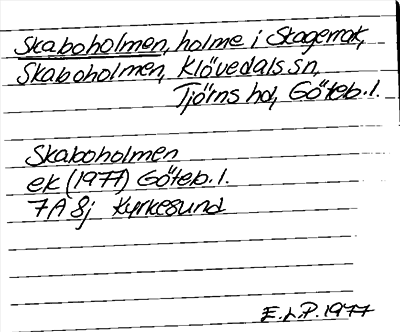 Skaboholmen, holme i Skagerrak,
Skaboholmen, Klövedals sn,
Tjörns hd, Göteb. l.
Skaboholmen
ek (1977) Göteb. l.
7A 8j Kyrkesund
E.L.P. 1977